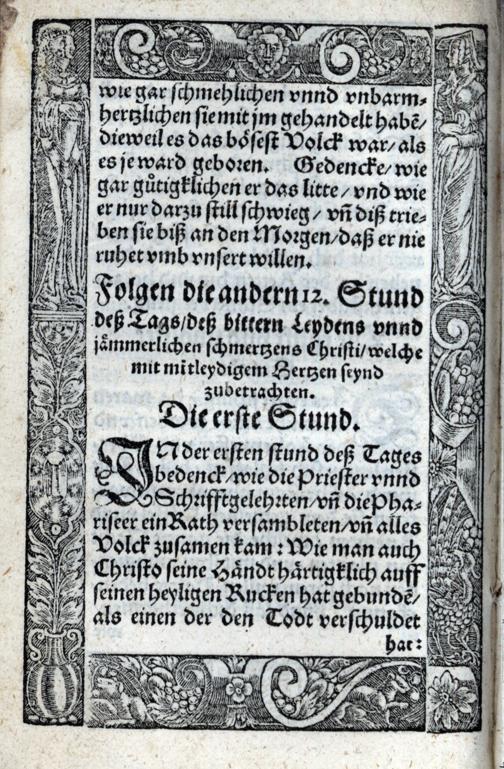 wie gar schmehlichen vnnd vnbarm⸗
hertzlichen sie mit jm gehandelt habē/
dieweil es das bösest Volck war/ als
es je ward geboren. Gedencke/ wie
gar gůtigklichen er das litte/ vnd wie
er nur darzu still schwieg/ vñ diß trie⸗
ben sie biß an den Morgen/ daß er nie
ruhet vmb vnsert willen.
Folgen die andern 12. Stund
deß Tags/ deß bittern Leydens vnnd
jämmerlichen schmertzens Christi/ welche
mit mitleydigem Hertzen seynd
zubetrachten.
Die erste Stund.
IN der ersten stund deß Tages
bedenck/ wie die Priester vnnd
Schrifftgelehrten/ vñ die Pha⸗
riseer ein Rath versambleten/ vñ alles
Volck zusamen kam: Wie man auch
Christo seine Händt härtigklich auff
seinen heyligen Rucken hat gebundē/
als einen der den Todt verschuldet
hat: